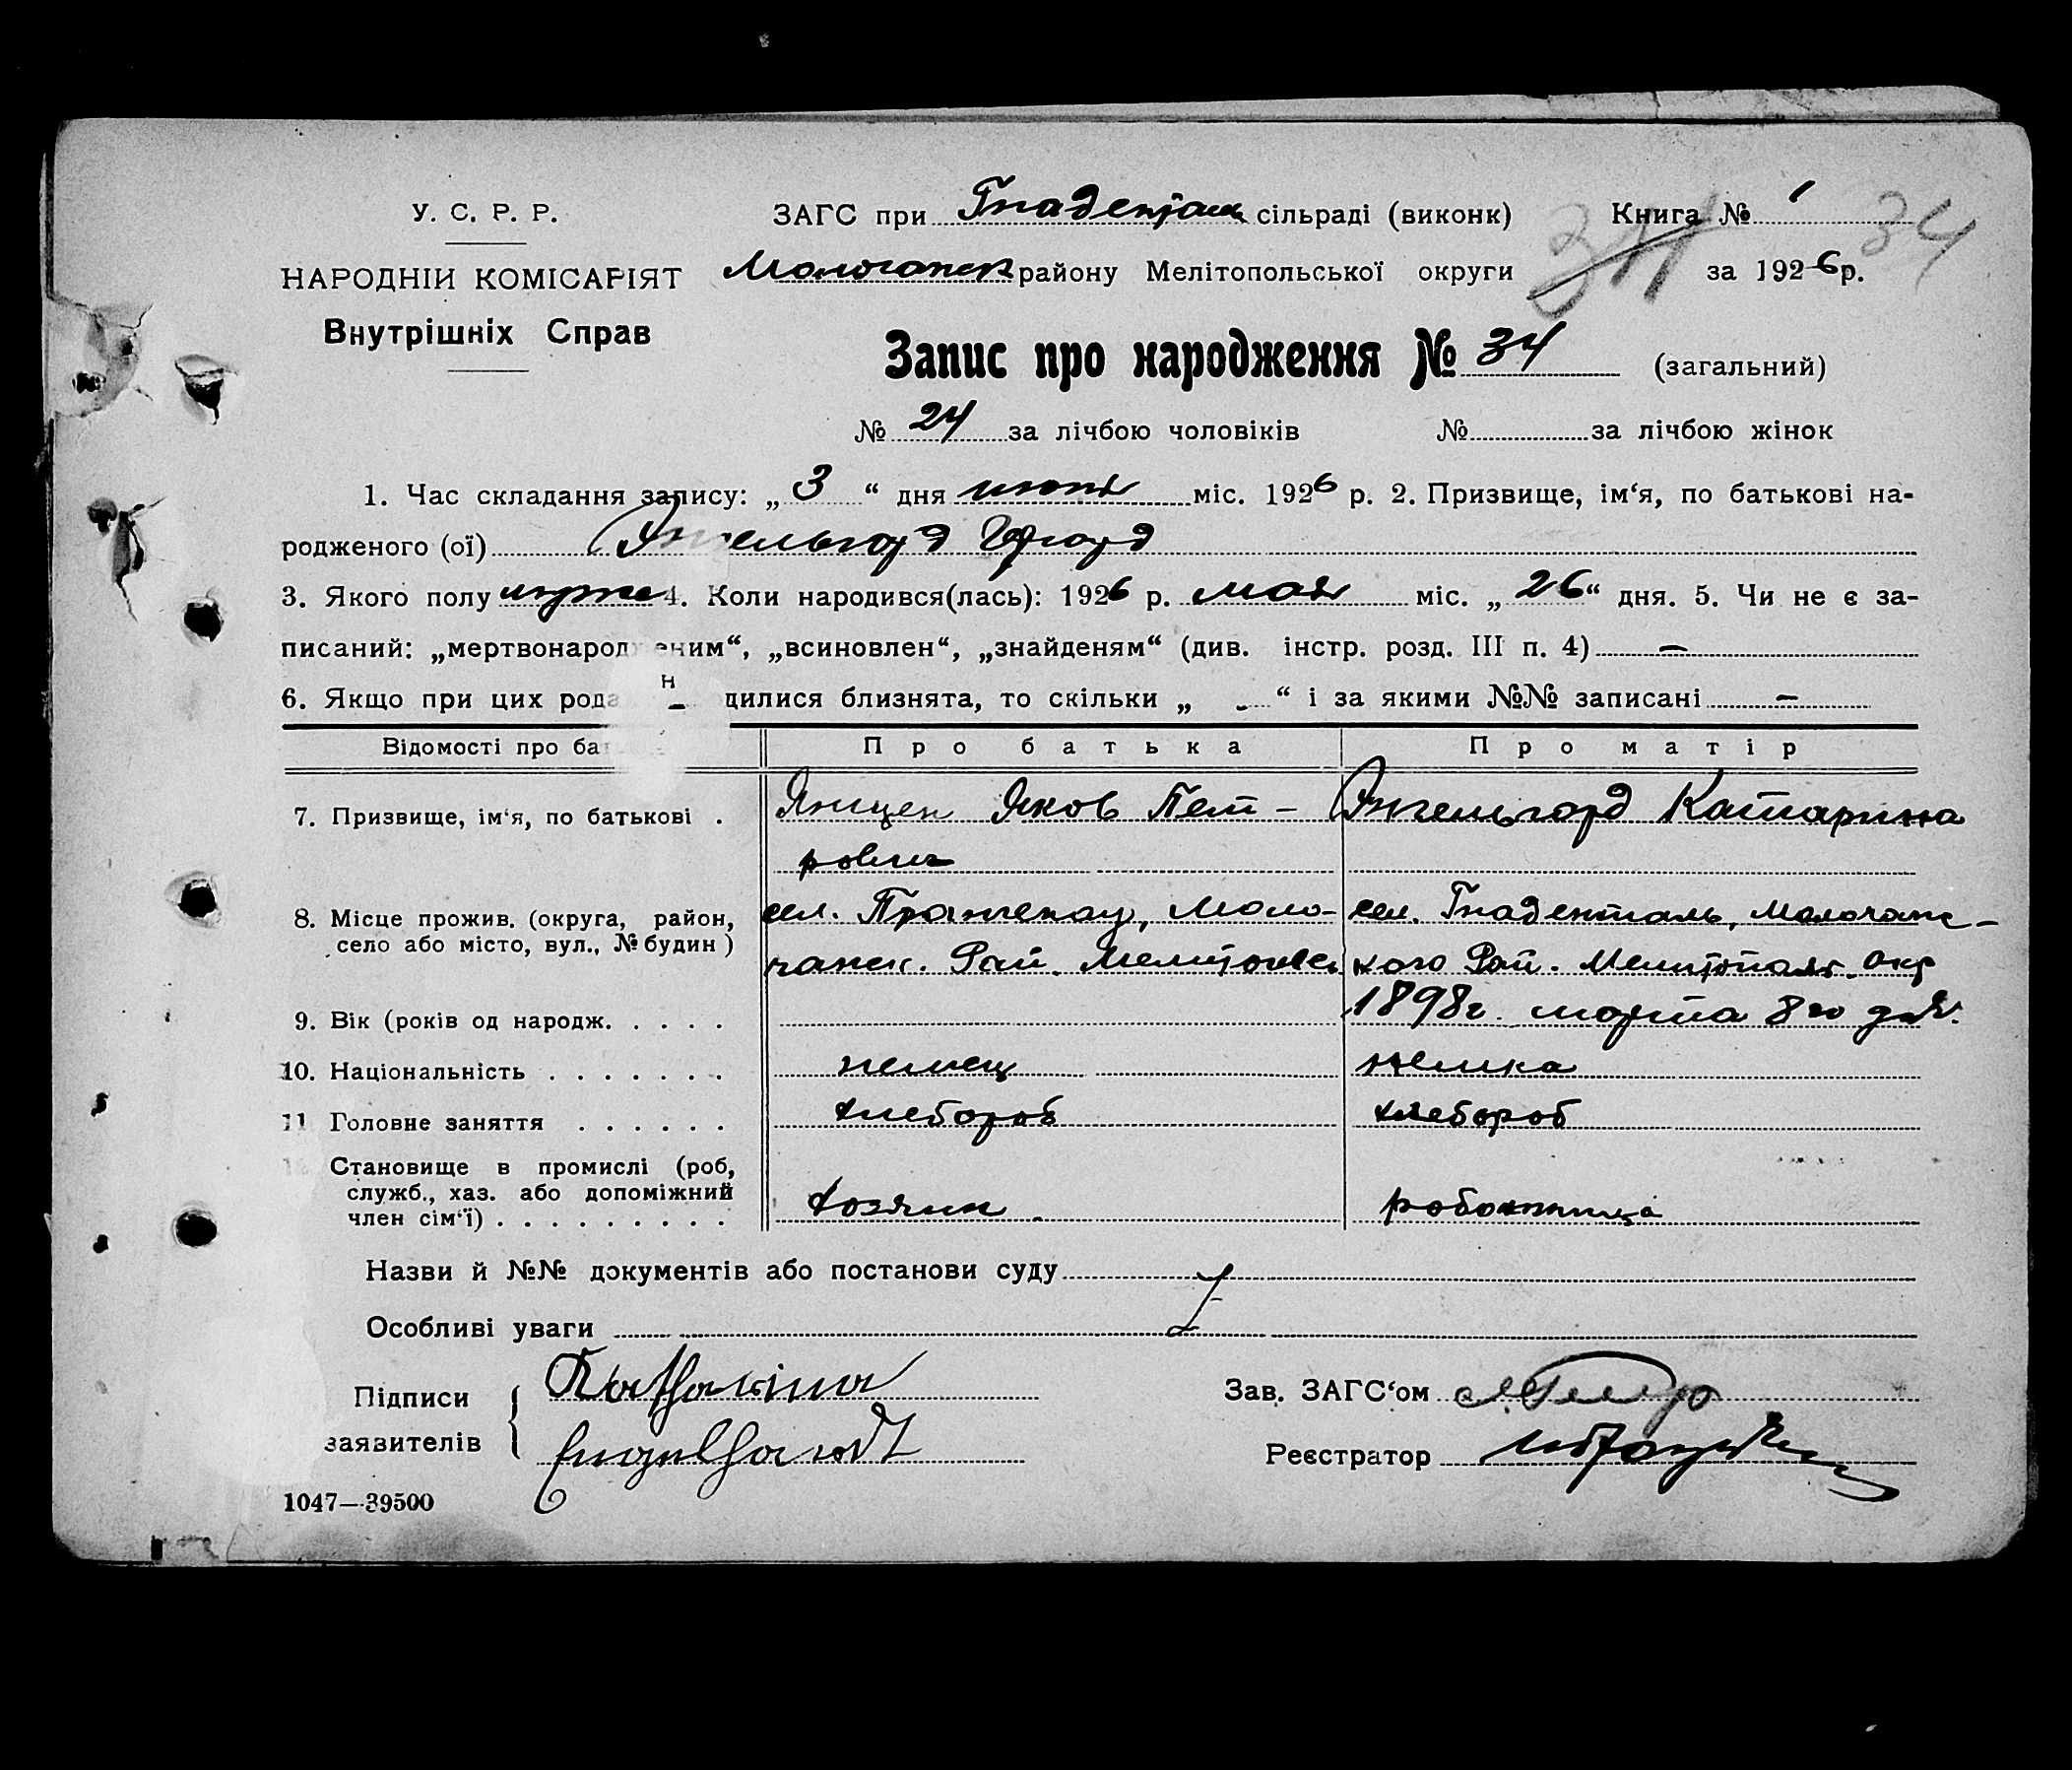 У. С. Р. Р.
НАРОДНІЙ КОМІСАРІЯТ
Внутрішніх Справ
ЗАГС при Гнаденталь сільраді (виконк) Книга № 1 34
Молочанск району Мелітопольської округи за 1926 р.
Запис про народження № 34 (загальний)
№ 24 за лічбою чоловіків № за лічбою жінок
1. Час складання запису: „ 3 “ дня июня міс. 1926 р. 2. Призвище, ім‘я, по батькові на-
родженого (ої) Энгельгард
3. Якого полу муже 4. Коли народився(лась): 1926 р. мая міс. „ 26 “ дня. 5. Чи не є за-
писаний: „мертвонародженим“, „всиновлен“, „знайденям“ (див. інстр. розд. III п. 4) —
6. Якщо при цих рода н – дилися близнята, то скільки „ - “ і за якими №№ записані —
Відомості про ба П р о б а т ь к а П р о м а т і р
7. Призвище, ім‘я, по батькові . Янцен Яков Пет- Энгельгард Катарина
рович
8. Місце прожив. (округа, район, сел. Прангенау, Моло- сел. Гнаденталь, Молочанс-
село або місто, вул., № будин ) чанск. Рай. Мелитопол кого Рай. Мелитополь. окр
9. Вік (років од народж. . . . . 1898г. марта 8го дня.
10. Національність . . . . . . . немец немка
11 Головне заняття . . . . . . хлебороб хлебороб
Становище в промислі (роб,
служб., хаз. або допоміжний
член сім‘ї) . . . . . . . . . Хозяин работница
Назви й №№ документів або постанови суду
Особливі уваги
Підписи Katharina Зав. ЗАГС‘ом
заявителів Engelhardt Реєстратор
1047—39500